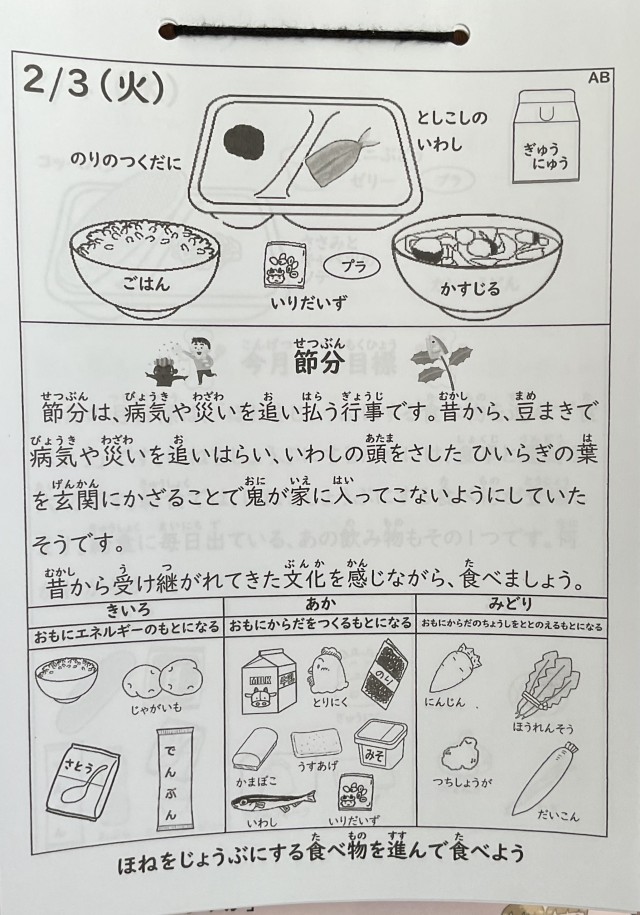 2/3(火)
AB
のりのつくだに
としこしの
いわし
ぎゅう
にゅう
ごはん
いりだいず
プラ
かすじる
せつぶん
節分
せつぶん びょうき わざわ お はら ぎょうじ むかし まめ
節分は、病気や災いを追い払う行事です。昔から、豆まきで
びょうき わざわ お あたま は
病気や災いを追いはらい、いわしの頭をさした ひいらぎの葉
げんかん おに いえ はい
を玄関にかざることで鬼が家に入ってこないようにしていた
そうです。
むかし う つ ぶんか かん た
昔から受け継がれてきた文化を感じながら、食べましょう。
きいろ
おもにエネルギーのもとになる
じゃがいも
さとう
でんぷん
あか
おもにからだをつくるもとになる
MILK
牛乳
とりにく
のり
かまぼこ
うすあげ
みそ
いわし
いりだいず
みどり
おもにからだのちょうしをととのえるもとになる
にんじん
ほうれんそう
つちしょうが
だいこん
た もの すす た
ほねをじょうぶにする食べ物を進んで食べよう